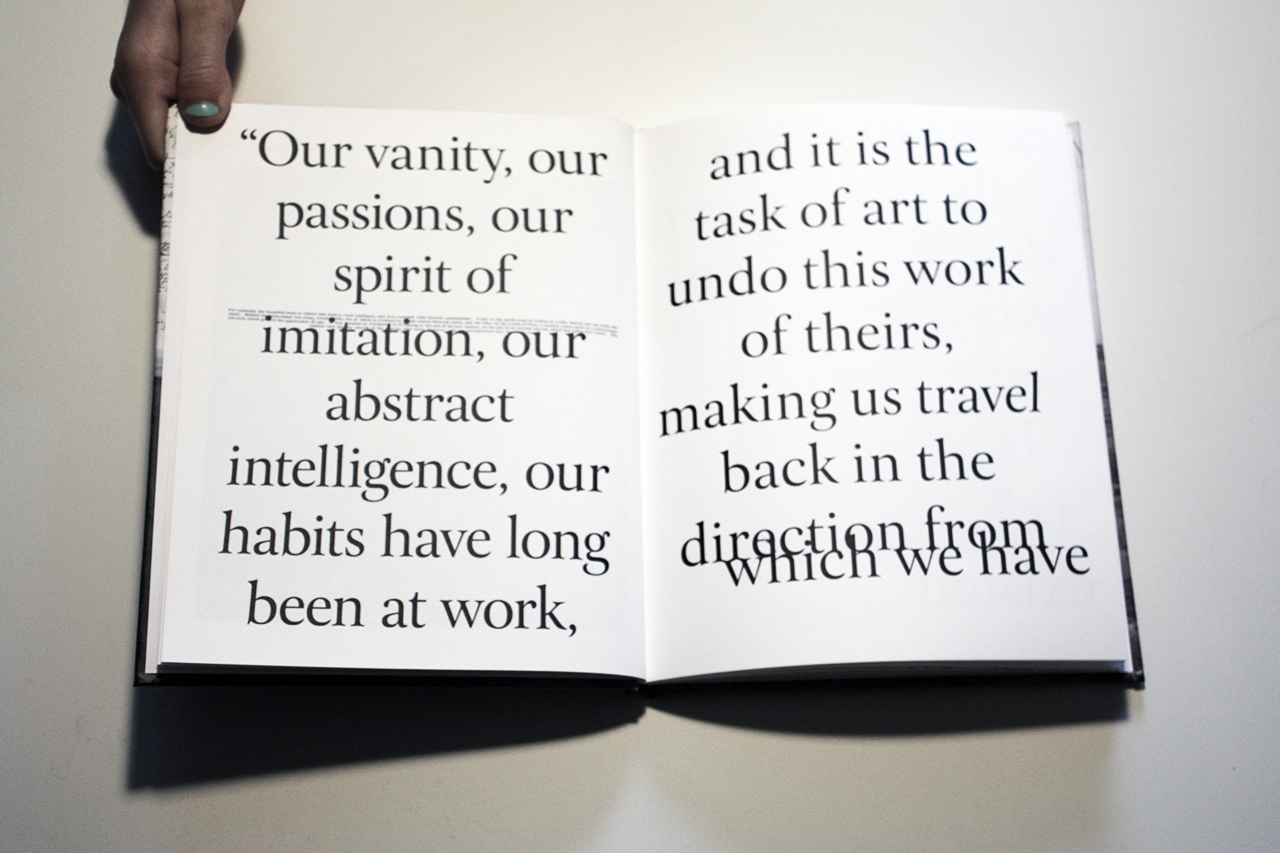 “Our vanity, our
passions, our
spirit of
imitation, our
abstract
intelligence, our
habits have long
been at work,
and it is the
task of art to
undo this work
of theirs,
making us travel
back in the
direction from
which we have